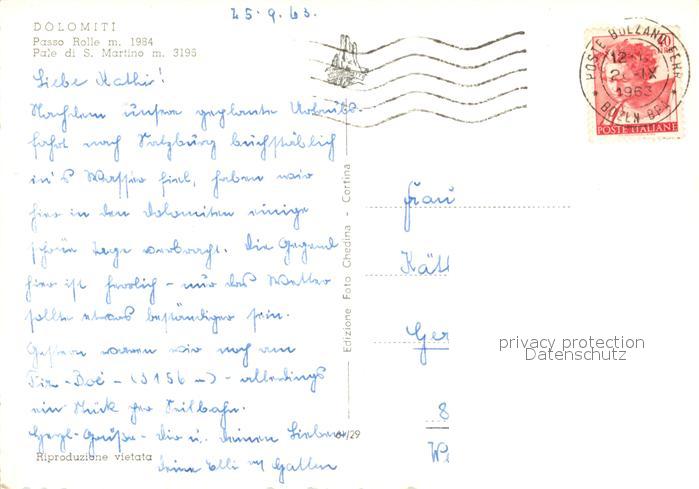 25.9.63.
DOLOMITI
Passo Rolle m. 1984
Pale di S. Martino m. 3195
Liebe Kathi!
Nachdem unsere geplante Urlaubs-
fahrt nach Salzburg buchstäblich
in's Wasser fiel, haben wir
hier in den Dolomiten einige
schöne Tage verbracht. Die Gegend
hier ist herrlich - nur das Wetter
sollte etwas beständiger sein.
Gestern waren wir noch am
Piz-Boé - (3156 m) - allerdings
ein Stück per Seilbahn.
Herzl. Grüße - Dir u. Deinen Lieben
Deine Elli
Riproduzione vietata
Edizione Foto Ghedina - Cortina
/29
POSTE BOLZANO FERR
12-
2 IX
1963
BOZEN BHF
40
POSTE ITALIANE
Frau
Kät
Ger
8
privacy protection
Datenschutz